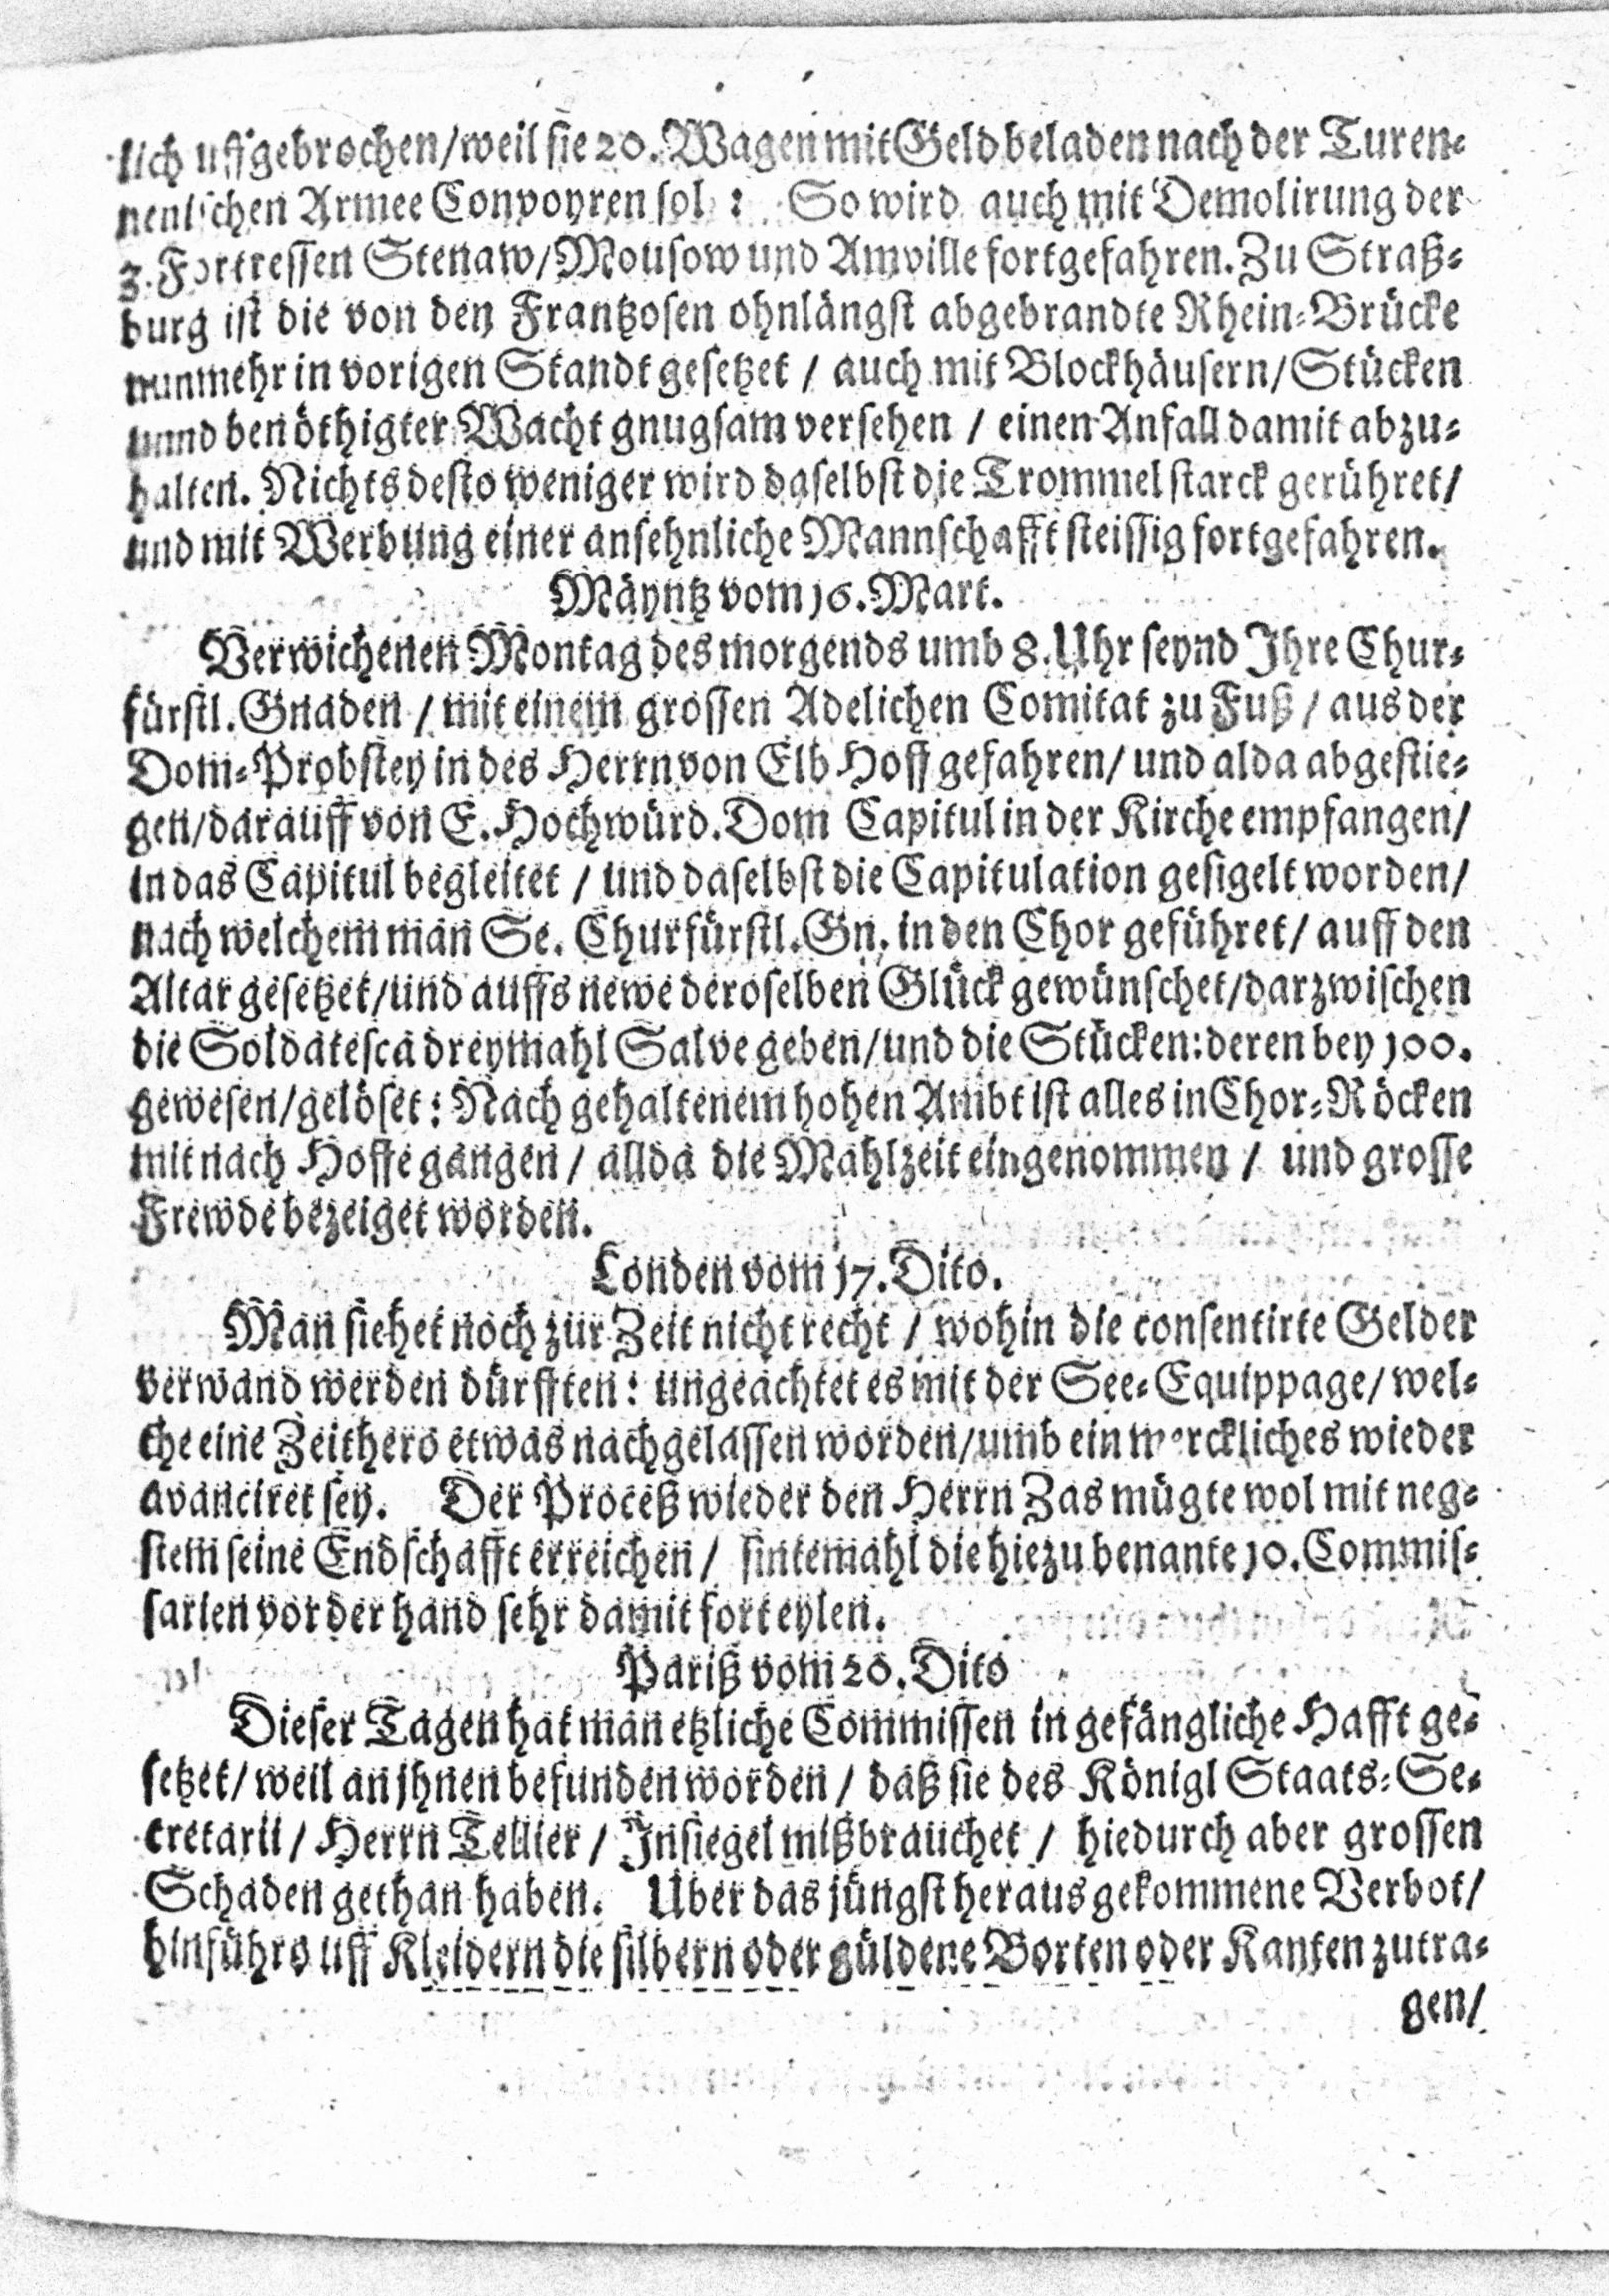 lich uffgebrochen/weil sie 20. Wagen mit Geld beladen nach der Turen-
nenischen Armee Convoyren sol: So wird auch mit Demolirung der
3. Fortressen Stenaw/Mousow und Amville fortgefahren. Zu Straß-
burg ist die von den Frantzosen ohnlängst abgebrandte Rhein-Brücke
nunmehr in vorigen Standt gesetzet / auch mit Blockhäusern/Stücken
unnd benöthigter Wacht gnugsam versehen / einen Anfall damit abzu-
halten. Nichts desto weniger wird daselbst die Trommel starck gerühret/
und mit Werbung einer ansehnliche Mannschafft fleissig fortgefahren.
Mäyntz vom 16. Mart.
Verwichenen Montag des morgends umb 8. Uhr seynd Ihre Chur-
fürstl. Gnaden / mit einem grossen Adelichen Comitat zu Fuß / aus der
Dom-Probstey in des Herrn von Elb Hoff gefahren/ und alda abgestie-
gen/darauff von E. Hochwürd. Dom Capitul in der Kirche empfangen/
in das Capitul begleitet / und daselbst die Capitulation gesigelt worden/
nach welchem man Se. Churfürstl. Gn. in den Chor geführet/ auff den
Altar gesetzet/und auffs newe deroselben Glück gewünschet/darzwischen
die Soldatesca dreymahl Salve geben/und die Stücken: deren bey 100.
gewesen/gelöset: Nach gehaltenem hohen Ambt ist alles in Chor-Röcken
mit nach Hoffe gangen / allda die Mahlzeit eingenommen / und grosse
Frewde bezeiget worden.
Londen vom 17. Dito.
Man siehet noch zur Zeit nicht recht / wohin die consentirte Gelder
verwand werden dürfften: ungeachtet es mit der See-Equippage/ wel-
che eine Zeithero etwas nachgelassen worden/umb ein merckliches wieder
avanciret sey. Der Proceß wieder den Herrn Zas mügte wol mit neg-
stem seine Endschafft erreichen / sintemahl die hiezu benante 10. Commis-
sarien vor der hand sehr damit forteylen.
Pariß vom 20. Dito
Dieser Tagen hat man etzliche Commissen in gefängliche Hafft ge-
setzet/ weil an jhnen befunden worden / daß sie des Königl Staats-Se-
cretarii / Herrn Tellier / Insiegel mißbrauchet / hiedurch aber grossen
Schaden gethan haben. Uber das jüngst heraus gekommene Verbot/
hinführo uff Kleidern die silbern oder güldene Borten oder Kanten zutra-
gen/